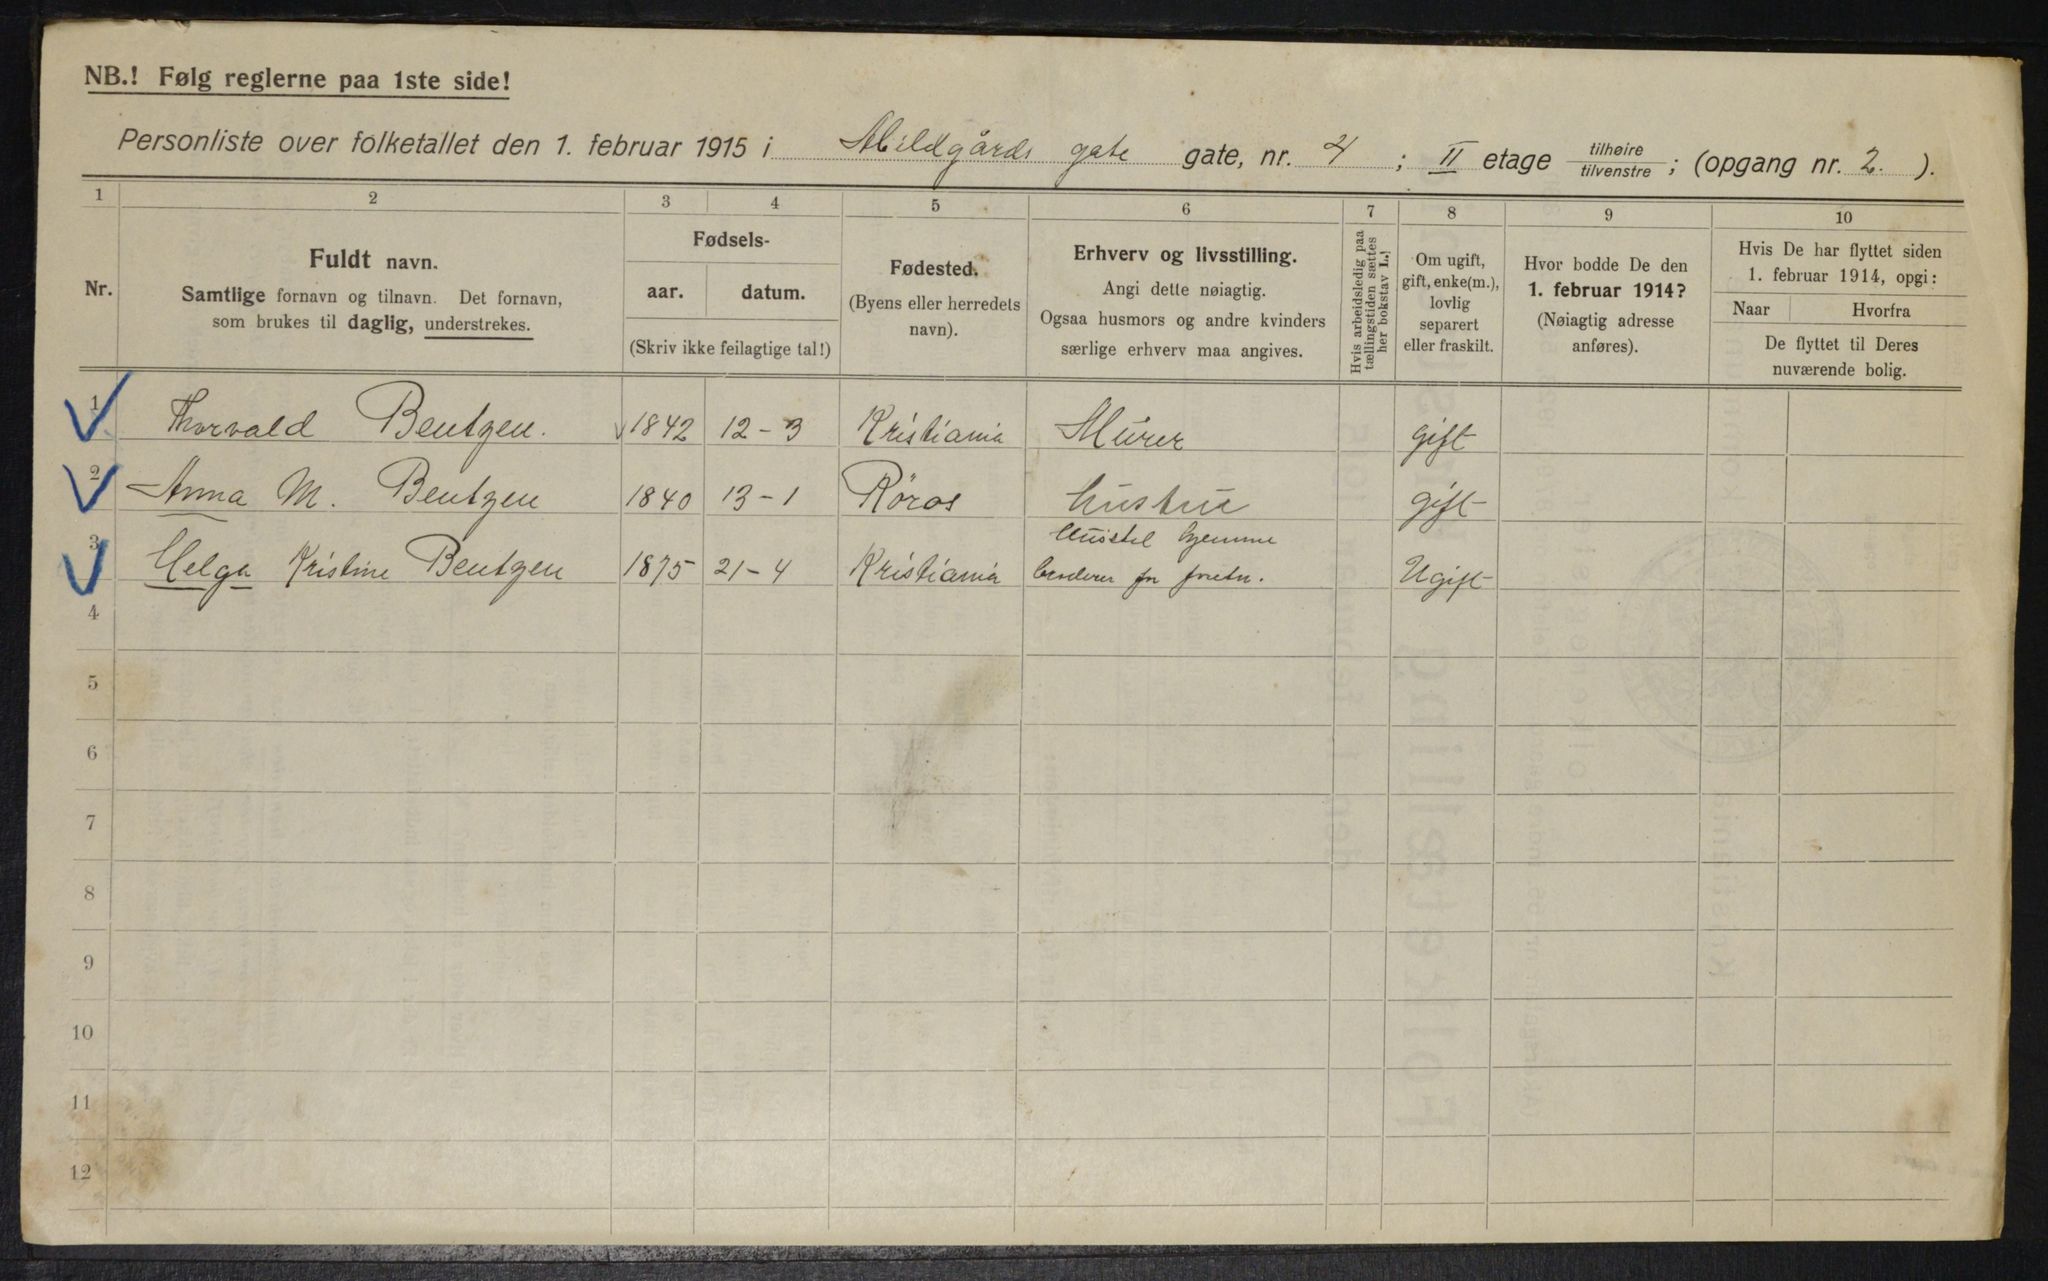 NB.! Følg reglerne paa 1ste side!
Personliste over folketallet den 1. februar 1915 i Abildgårds gate gate, nr. 4 ; II etage tilhøire / tilvenstre ; (opgang nr. 2. ).
1 2 3 4 5 6 7 8 9 10
Nr.
Fuldt navn.
Samtlige fornavn og tilnavn. Det fornavn,
som brukes til daglig, understrekes.
Fødsels-
aar. datum.
(Skriv ikke feilagtige tal!)
Fødested.
(Byens eller herredets
navn).
Erhverv og livsstilling.
Angi dette nøiagtig.
Ogsaa husmors og andre kvinders
særlige erhverv maa angives.
Hvis arbeidsledig paa
tællingstiden sættes
her bokstav L.!
Om ugift,
gift, enke(m.),
lovlig
separert
eller fraskilt.
Hvor bodde De den
1. februar 1914?
(Nøiagtig adresse
anføres).
Hvis De har flyttet siden
1. februar 1914, opgi:
Naar Hvorfra
De flyttet til Deres
nuværende bolig.
1 Thorvald Bentzen. 1842 12-3 Kristiania Murer gift
2 Anna M. Bentzen 1840 13-1 Røros hustru gift
Husstel hjemme
3 Helga Kristine Bentzen 1875 21-4 Kristiania broderer for forretn. Ugift
4
5
6
7
8
9
10
11
12